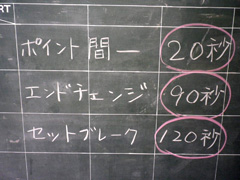 RT
ポイント間ー 20秒
エンドチェンジ 90秒
セットブレーク 120秒